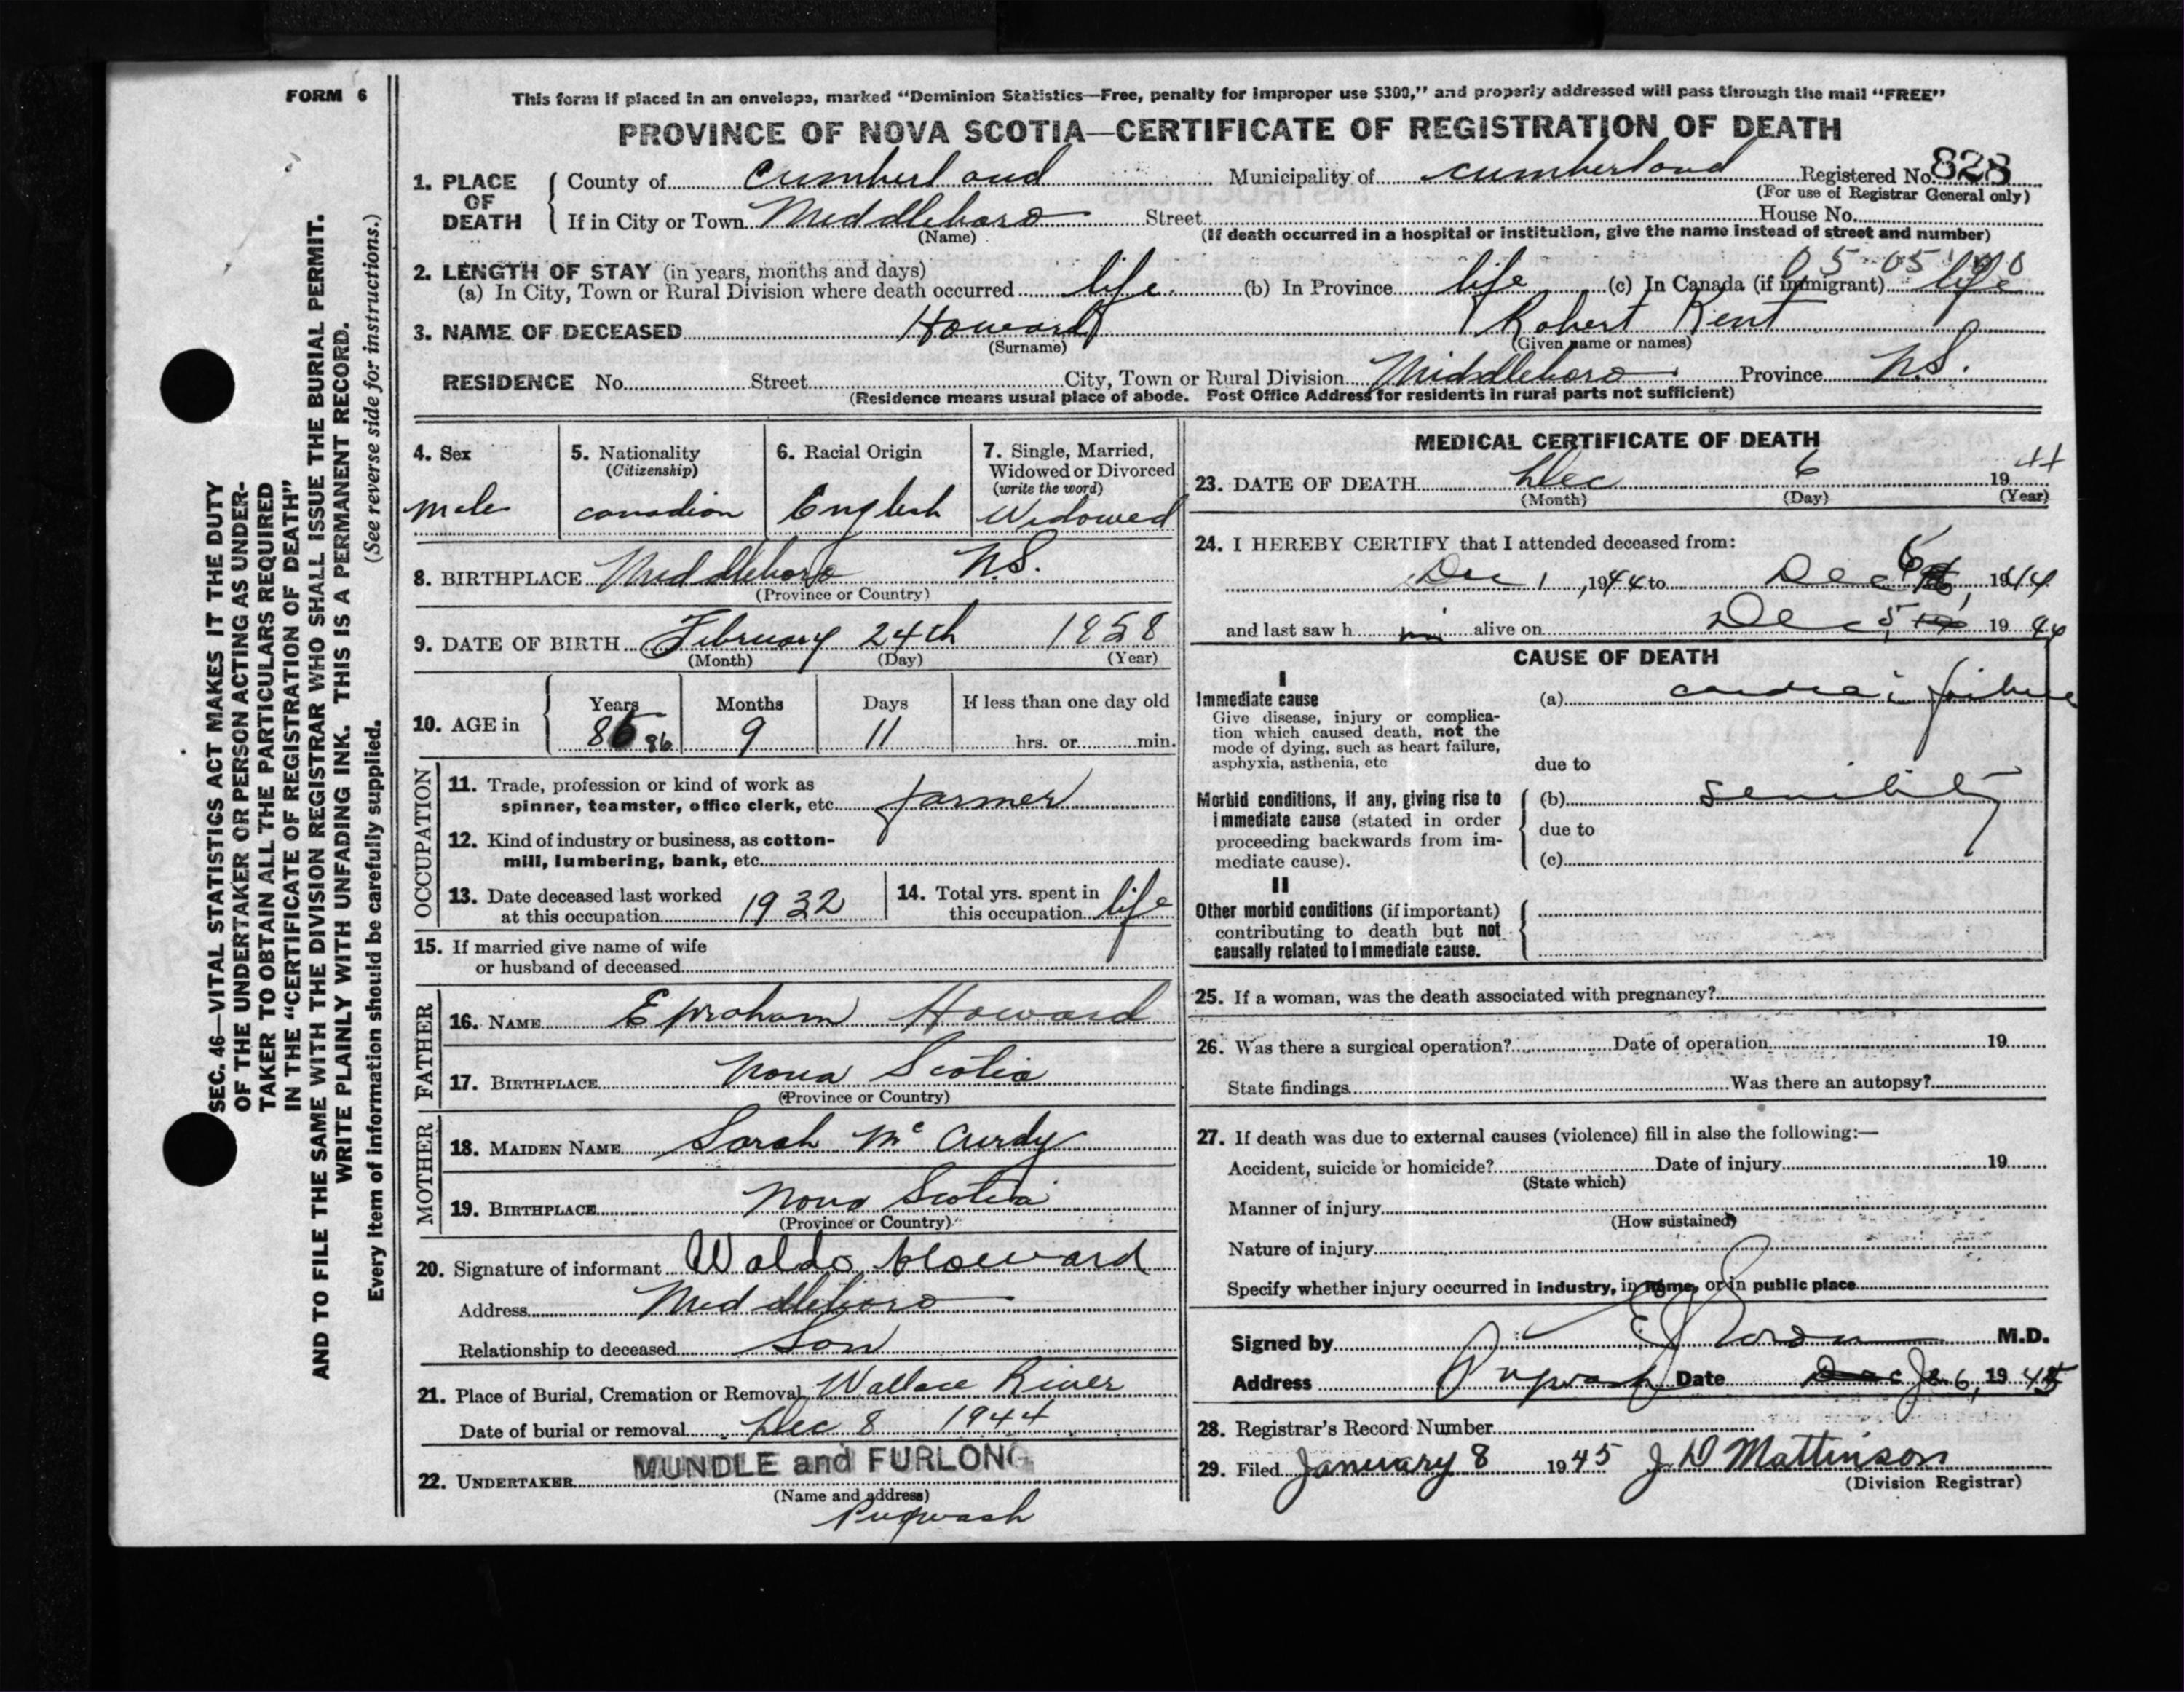 FORM 6
SEC. 46—VITAL STATISTICS ACT MAKES IT THE DUTY
OF THE UNDERTAKER OR PERSON ACTING AS UNDER-
TAKER TO OBTAIN ALL THE PARTICULARS REQUIRED
IN THE "CERTIFICATE OF REGISTRATION OF DEATH"
AND TO FILE THE SAME WITH THE DIVISION REGISTRAR WHO SHALL ISSUE THE BURIAL PERMIT.
WRITE PLAINLY WITH UNFADING INK. THIS IS A PERMANENT RECORD.
Every item of information should be carefully supplied. (See reverse side for instructions.)
This form if placed in an envelope, marked "Dominion Statistics—Free, penalty for improper use $300," and properly addressed will pass through the mail "FREE"
PROVINCE OF NOVA SCOTIA—CERTIFICATE OF REGISTRATION OF DEATH
1. PLACE OF DEATH County of Cumberland Municipality of Cumberland Registered No. 828
(For use of Registrar General only)
If in City or Town Middleboro Street House No.
(Name) (If death occurred in a hospital or institution, give the name instead of street and number)
2. LENGTH OF STAY (in years, months and days) 05 05 100
(a) In City, Town or Rural Division where death occurred life (b) In Province life (c) In Canada (if immigrant) life
3. NAME OF DECEASED Howard Robert Kent
(Surname) (Given name or names)
RESIDENCE No. Street City, Town or Rural Division Middleboro Province N.S.
(Residence means usual place of abode. Post Office Address for residents in rural parts not sufficient)
4. Sex
male
5. Nationality
(Citizenship)
canadian
6. Racial Origin
English
7. Single, Married,
Widowed or Divorced
(write the word)
Widowed
8. BIRTHPLACE Middleboro N.S.
(Province or Country)
9. DATE OF BIRTH February 24th 1858
(Month) (Day) (Year)
10. AGE in Years Months Days If less than one day old
86 86 9 11 hrs. or min.
OCCUPATION
11. Trade, profession or kind of work as
spinner, teamster, office clerk, etc. farmer
12. Kind of industry or business, as cotton-
mill, lumbering, bank, etc.
13. Date deceased last worked
at this occupation 1932
14. Total yrs. spent in
this occupation life
15. If married give name of wife
or husband of deceased
FATHER
16. NAME Epraham Howard
17. BIRTHPLACE Nova Scotia
(Province or Country)
MOTHER
18. MAIDEN NAME Sarah Mc Curdy
19. BIRTHPLACE Nova Scotia
(Province or Country)
20. Signature of informant Waldo Howard
Address Middleboro
Relationship to deceased Son
21. Place of Burial, Cremation or Removal Wallace River
Date of burial or removal Dec 8 1944
22. UNDERTAKER MUNDLE and FURLONG
(Name and address)
Pugwash
MEDICAL CERTIFICATE OF DEATH
23. DATE OF DEATH Dec 6 1944
(Month) (Day) (Year)
24. I HEREBY CERTIFY that I attended deceased from:
Dec 1, 1944 to Dec 6, 1944
and last saw h im alive on Dec 5 1944
CAUSE OF DEATH
I
Immediate cause
Give disease, injury or complica-
tion which caused death, not the
mode of dying, such as heart failure,
asphyxia, asthenia, etc
(a) cardiac failure
due to
Morbid conditions, if any, giving rise to
immediate cause (stated in order
proceeding backwards from im-
mediate cause).
(b) senility
due to
(c)
II
Other morbid conditions (if important)
contributing to death but not
causally related to immediate cause.
25. If a woman, was the death associated with pregnancy?
26. Was there a surgical operation? Date of operation 19
State findings Was there an autopsy?
27. If death was due to external causes (violence) fill in also the following:—
Accident, suicide or homicide? Date of injury 19
(State which)
Manner of injury
(How sustained)
Nature of injury
Specify whether injury occurred in industry, in home, or in public place
Signed by M.D.
Address Pugwash Date Dec Ja 6, 1945
28. Registrar's Record Number
29. Filed January 8 1945 J D Mattinson
(Division Registrar)